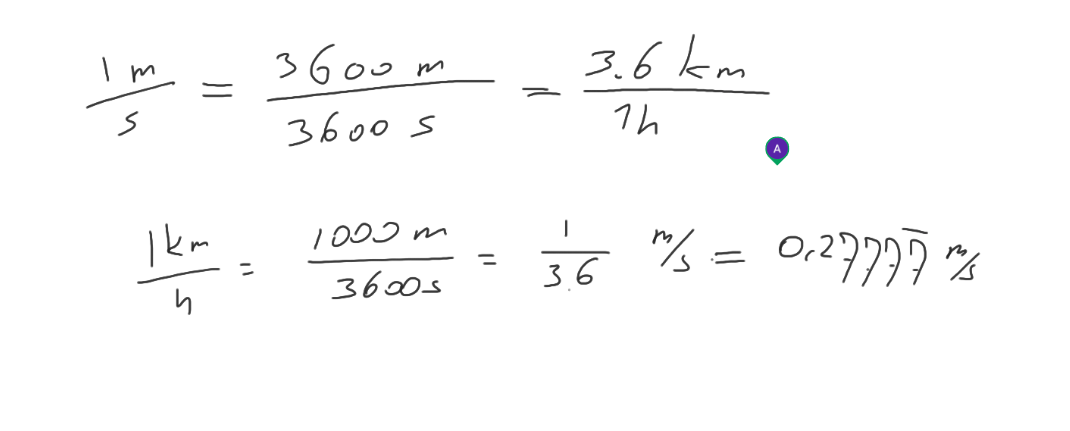 1 m/s = 3600 m/3600 s = 3.6 km/1h
A
1 km/h = 1000 m/3600s = 1/3.6 m/s = 0,27777̅ m/s